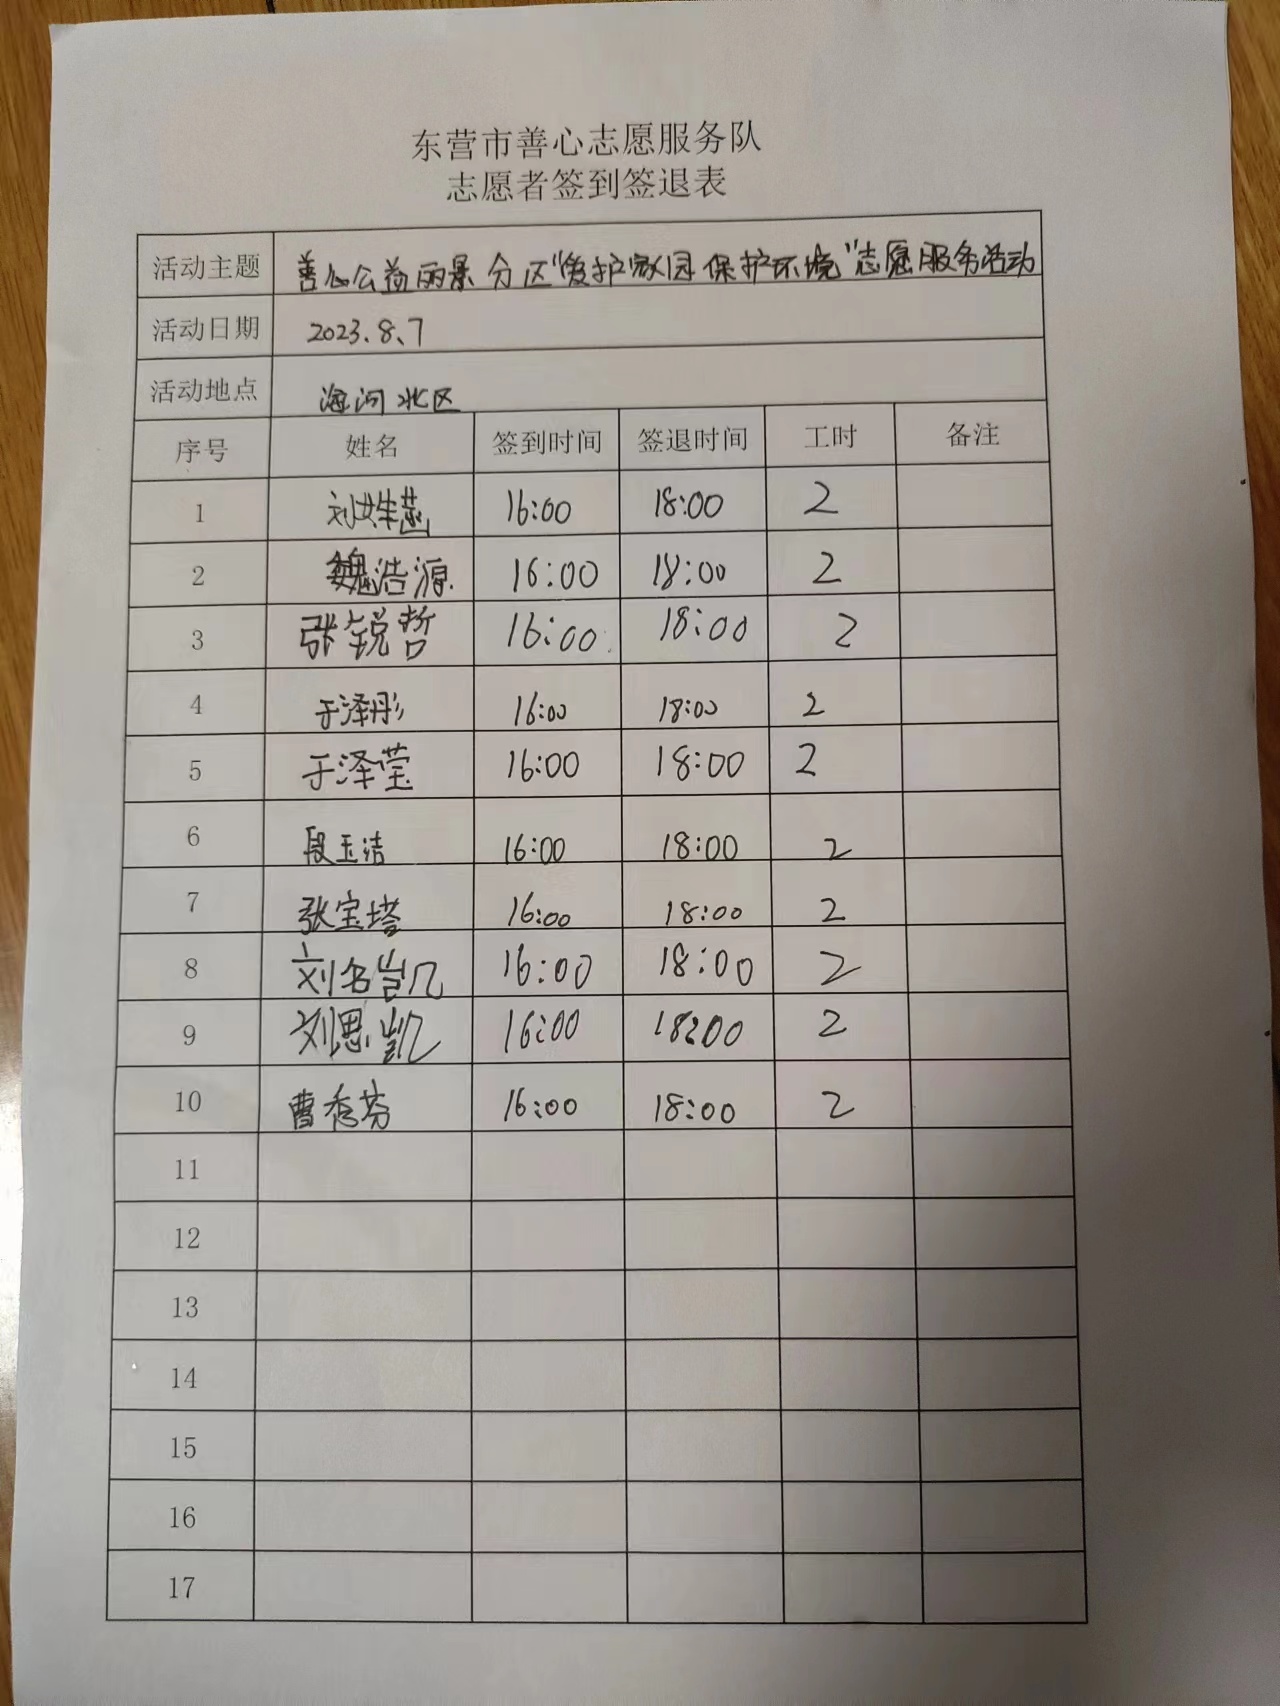 东营市善心志愿服务队
志愿者签到签退表
活动主题 善心公益丽景分区“爱护家园保护环境”志愿服务活动
活动日期 2023.8、7
活动地点 海河北区
序号 姓名 签到时间 签退时间 工时 备注
1 刘 16:00 18:00 2
2 魏浩源 16:00 18:00 2
3 张锐哲 16:00 18:00 2
4 于泽彤 16:00 18:00 2
5 于泽莹 16:00 18:00 2
6 段玉洁 16:00 18:00 2
7 张宝塔 16:00 18:00 2
8 刘名凯 16:00 18:00 2
9 刘思凯 16:00 18:00 2
10 曹秀芬 16:00 18:00 2
11
12
13
14
15
16
17